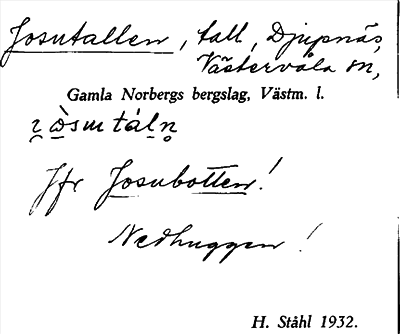 Josutallen, tall, Djupnäs,
Västervåla sn,
Gamla Norbergs bergslag, Västm. l.
Jfr Josubotten!
Nedhuggen!
H. Ståhl 1932.